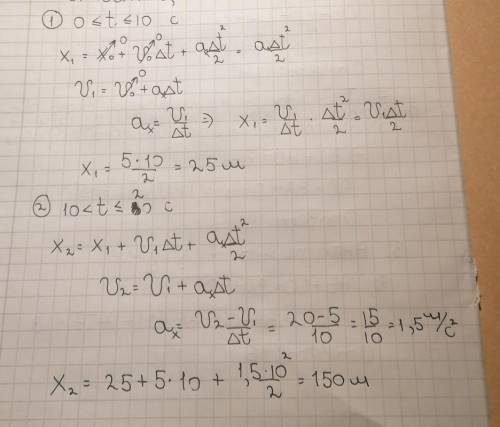 ① 0 ≤ t ≤ 10 с
x₁ = x₀⁰ + υ₀⁰Δt + aₓΔt²/2 = aₓΔt²/2
υ₁ = υ₀⁰ + aₓΔt
aₓ = υ₁/Δt ⇒ x₁ = υ₁/Δt · Δt²/2 = υ₁Δt/2
x₁ = 5·10/2 = 25 м
② 10 < t ≤ 20 с
x₂ = x₁ + υ₁Δt + aₓΔt²/2
υ₂ = υ₁ + aₓΔt
aₓ = υ₂-υ₁/Δt = 20-5/10 = 15/10 = 1,5 м/с²
x₂ = 25 + 5·10 + 1,5·10²/2 = 150 м